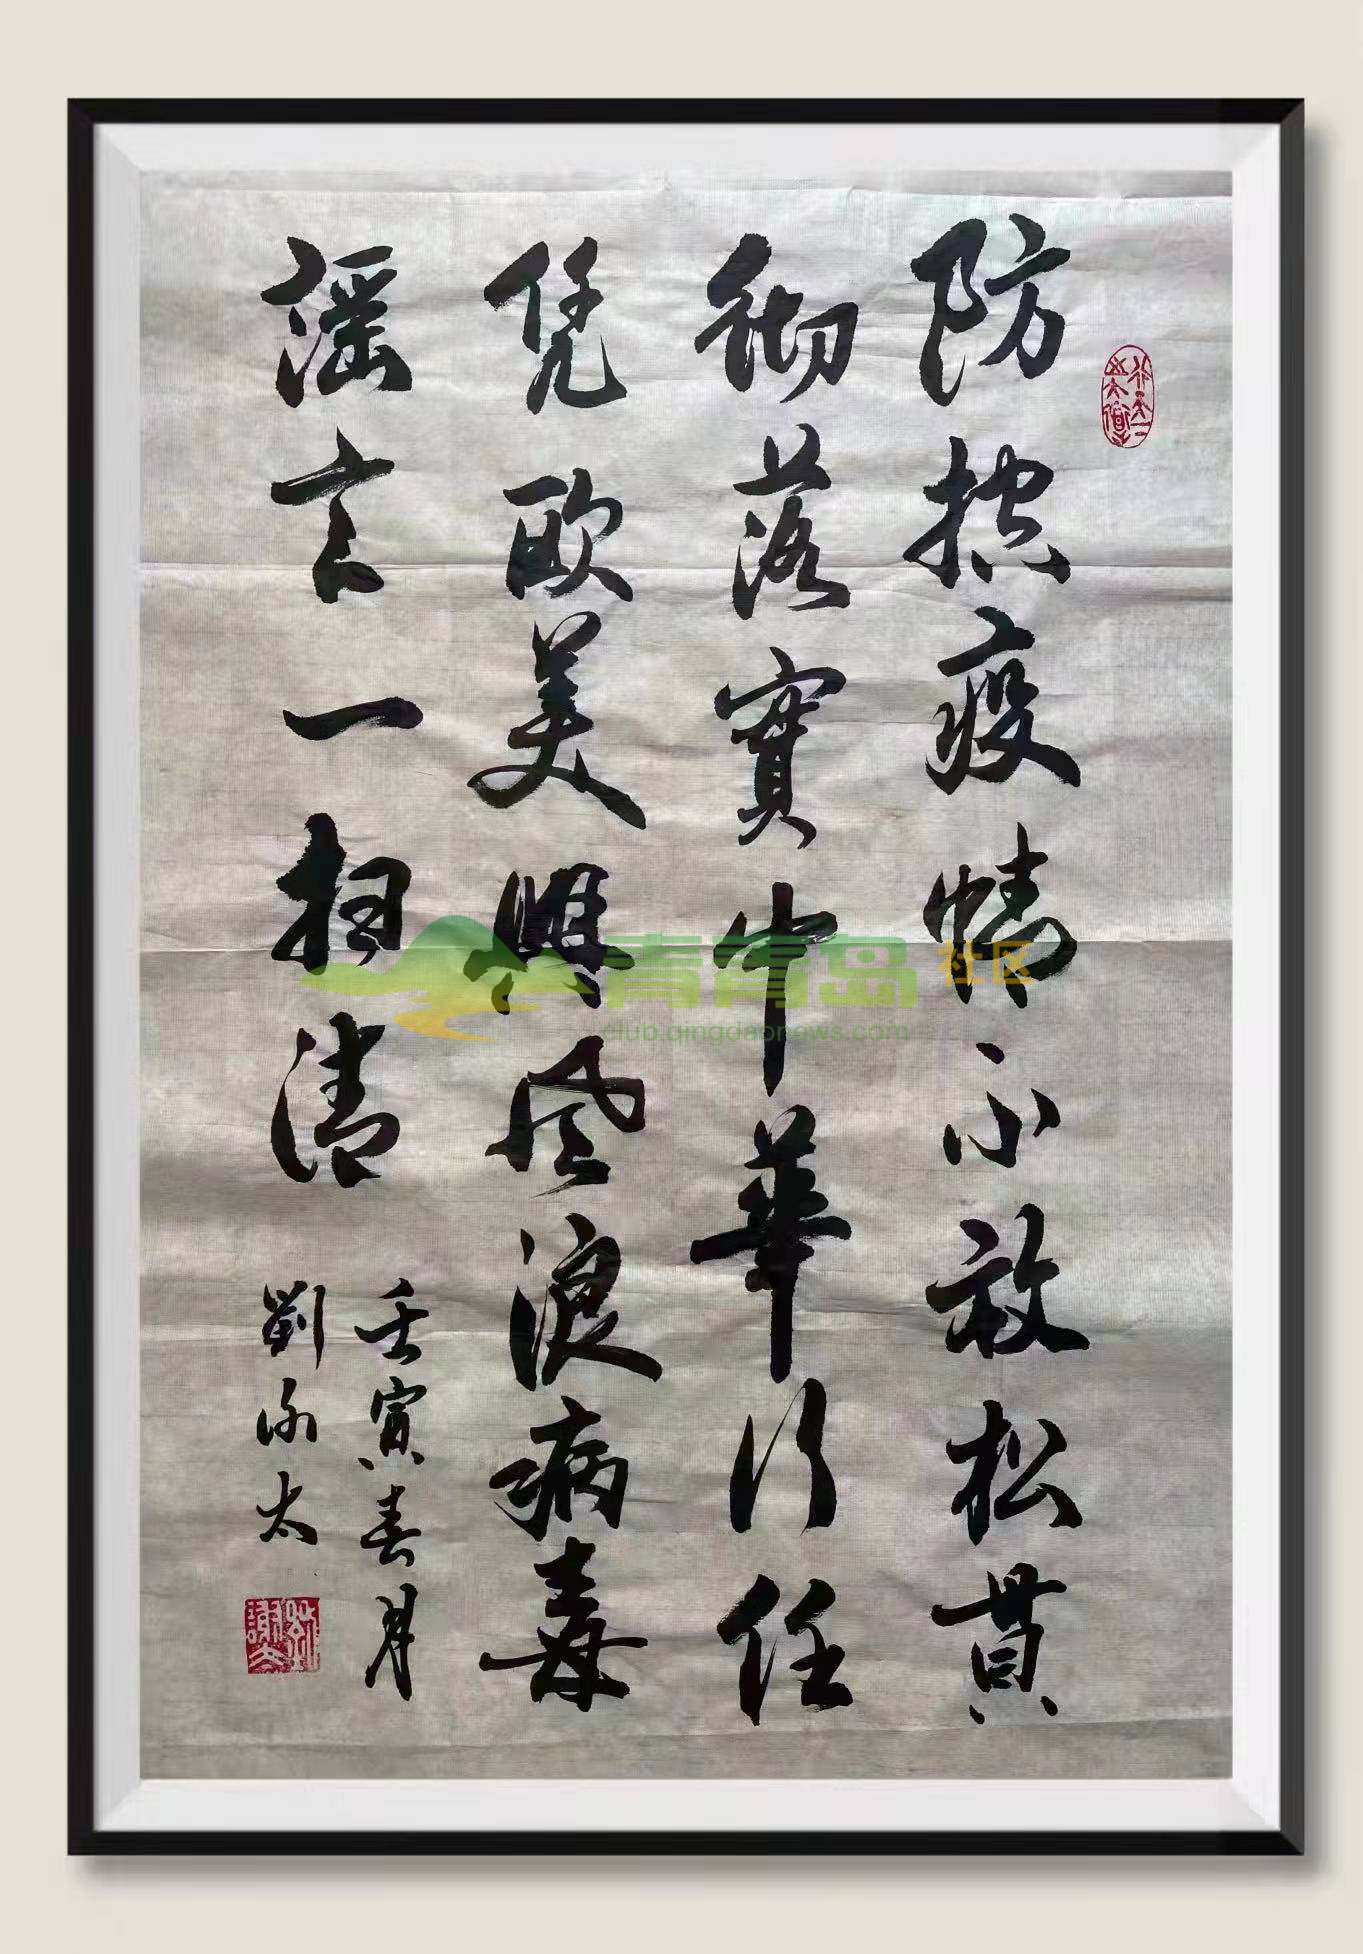 防控疫情不放松贯
彻落實中華行任
凭欧美興风浪病毒
谣言一扫清
壬寅春月
劉永太
青青岛社区
club.qingdaonews.com